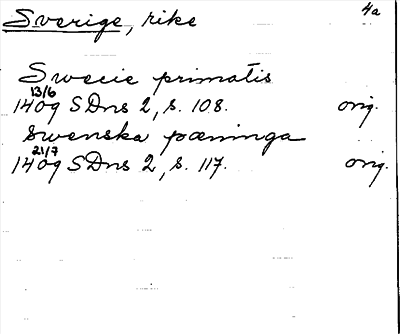 Sverige, rike 4a
Swecie primatis
13/6
1409 SDns 2, s. 108. orig.
swenska pæninga
21/7
1409 SDns 2, s. 117. orig.